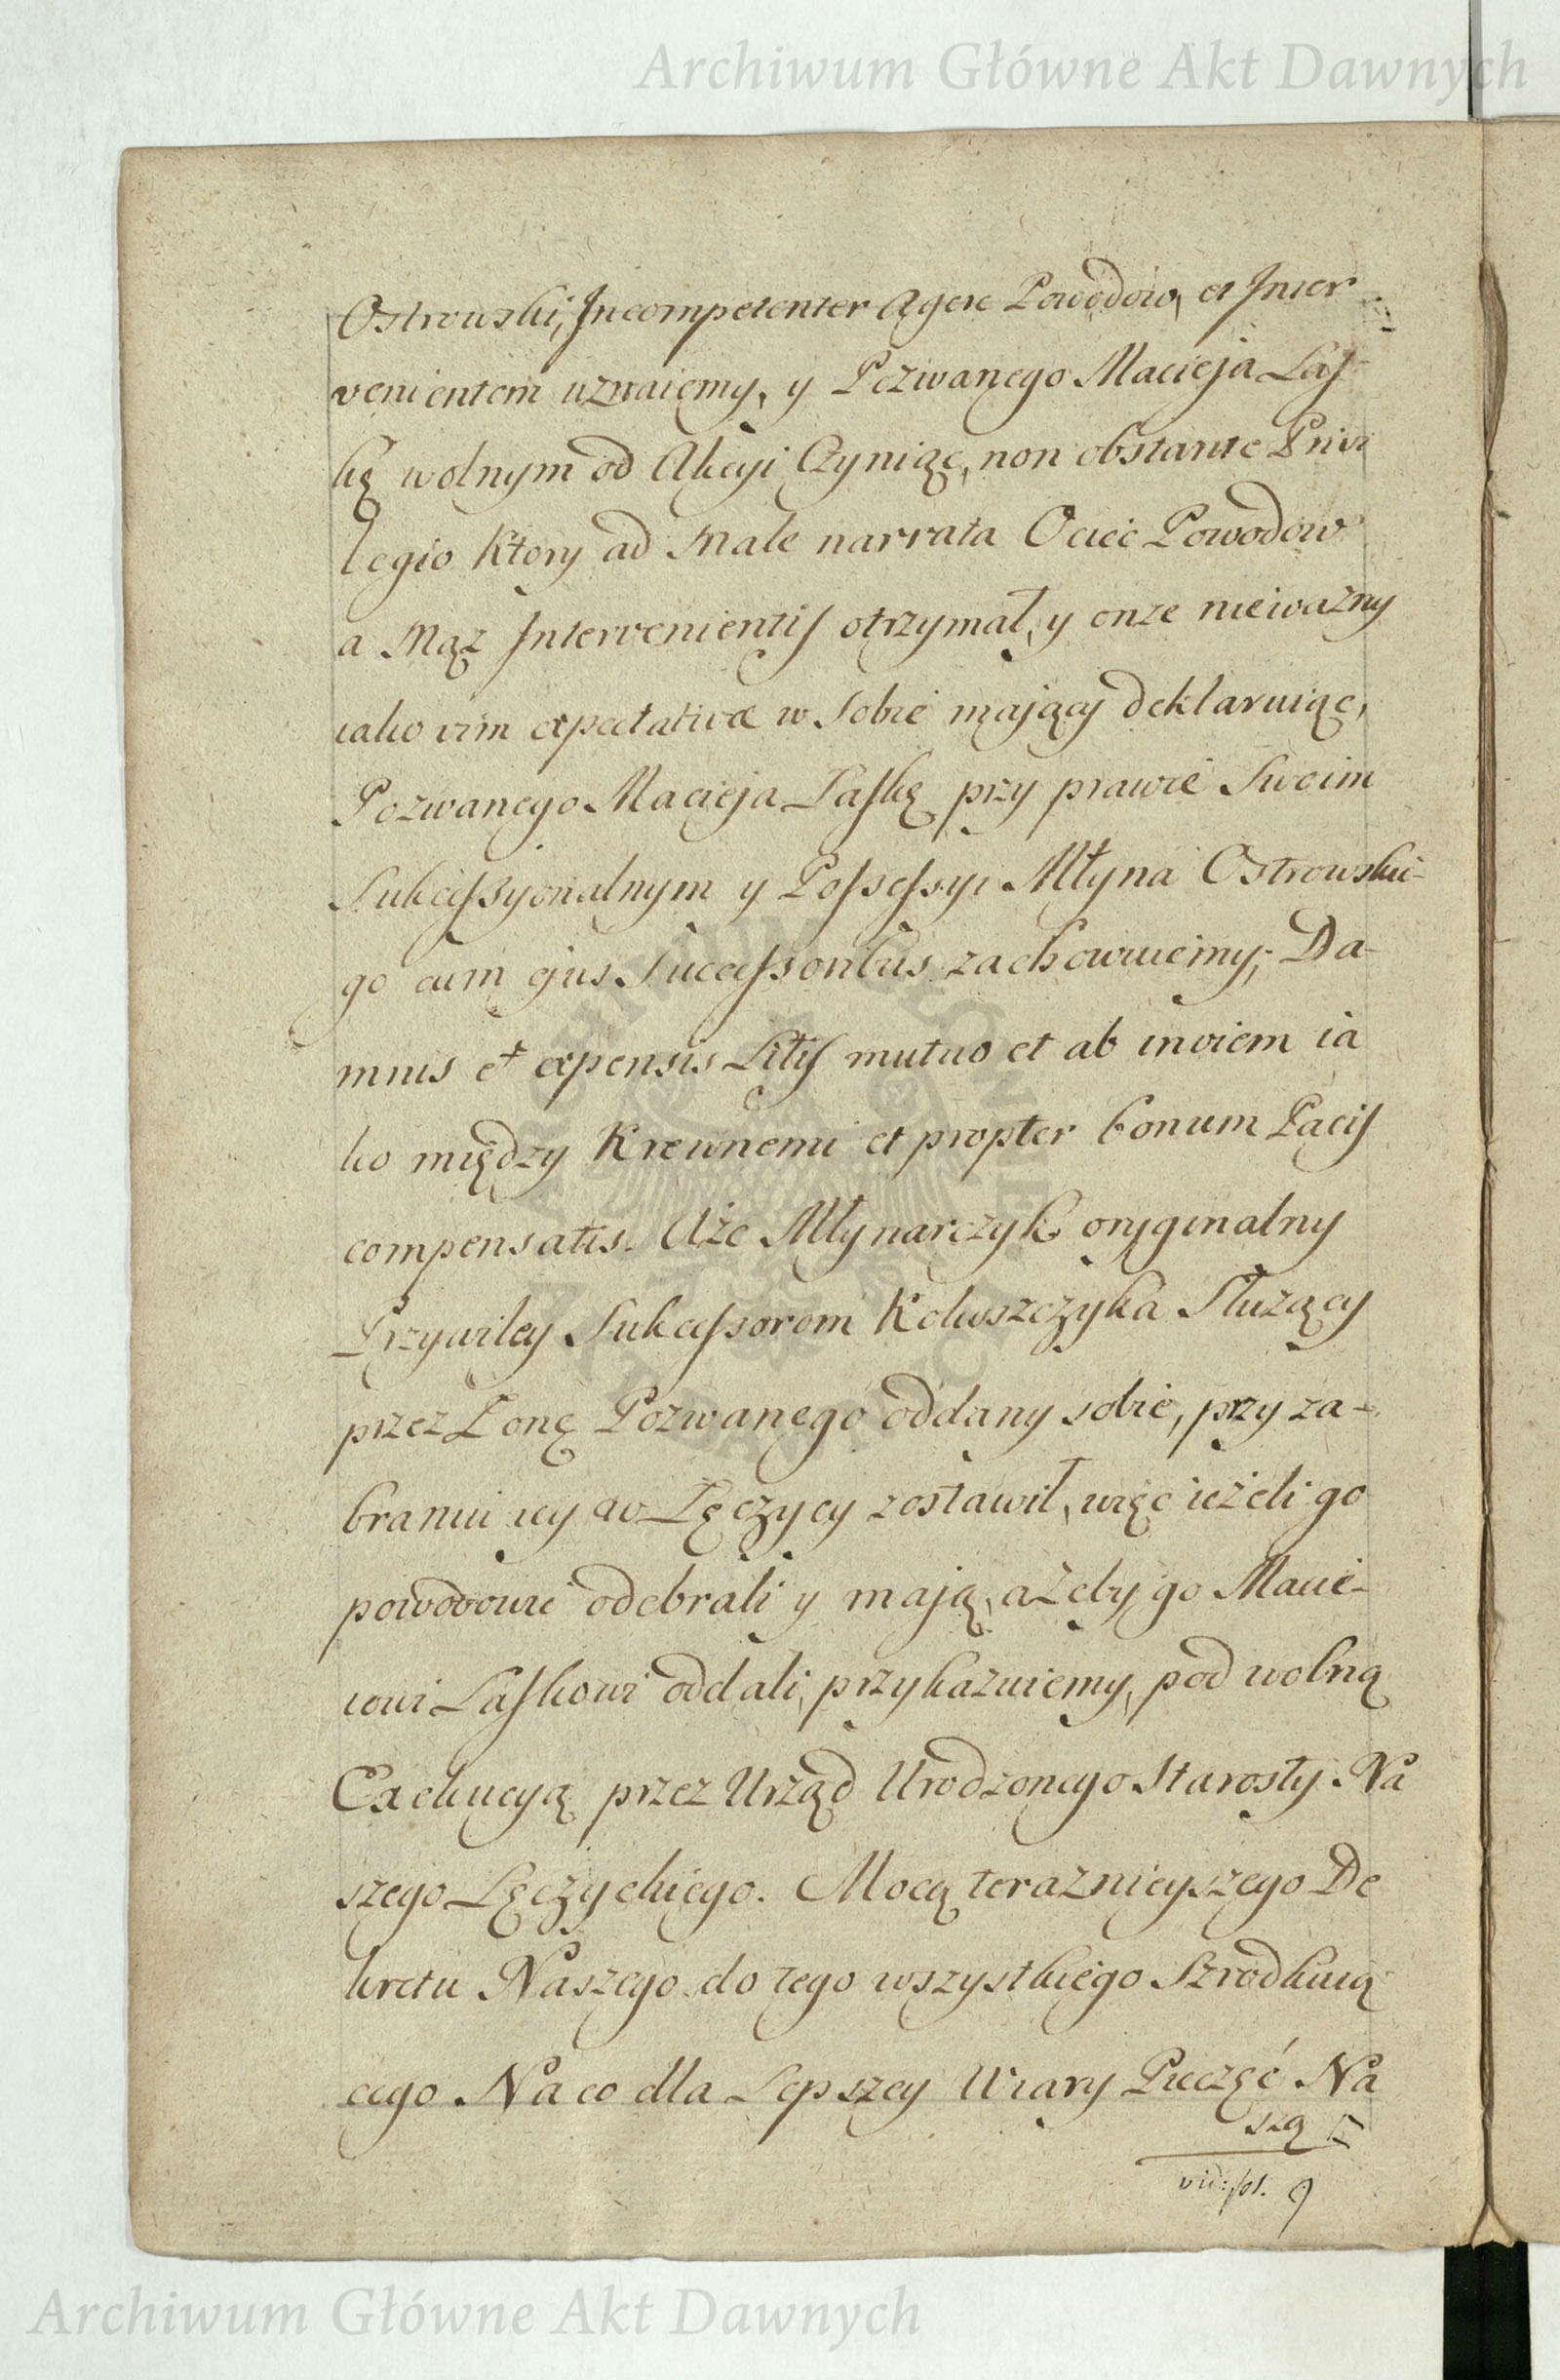 Archiwum Główne Akt Dawnych
Ostrowski, Incompetenter Agere Powodow, et Inter
venientem uznaiemy, y Pozwanego Macieja Las-
kę wolnym od Akcyi Czyniąc, non obstante Privi
legio Ktory ad male narrata Ociec Powodow
a Mąz Intervenientis otrzymał, y onze niewazny
iako vim expectativæ w Sobie mający deklaruiąc,
Pozwanego Macieja Laskę przy prawie Swoim
Sukcessyonalnym y Possessyi Młyna Ostrowskie-
go cum ejus Successoribus zachowuiemy; Da-
mnis et expensis Litis mutuo et ab inviem ia
ko między Krewnemi et propter bonum Pacis
compensatis. Aże Młynarczyk oryginalny
Przywiley Sukcessorom Kokoszczyka Służący
przez Zonę Pozwanego oddany sobie, przy za-
braniu iey w Łęczycy zostawił, więc ieżeli go
powodowie odebrali y mają, ażeby go Macie-
iowi Laskowi oddali, przykazuiemy, pod wolną
Exekucyą przez Urząd Urodzonego Starosty Na
szego Łęczyckiego. Mocą teraznieyszego De
kretu Naszego do tego wszystkiego Szrodkuią
cego Na co dla Lepszey Wiary Pieczęć Na
szą
vid: fol. 9
Archiwum Główne Akt Dawnych